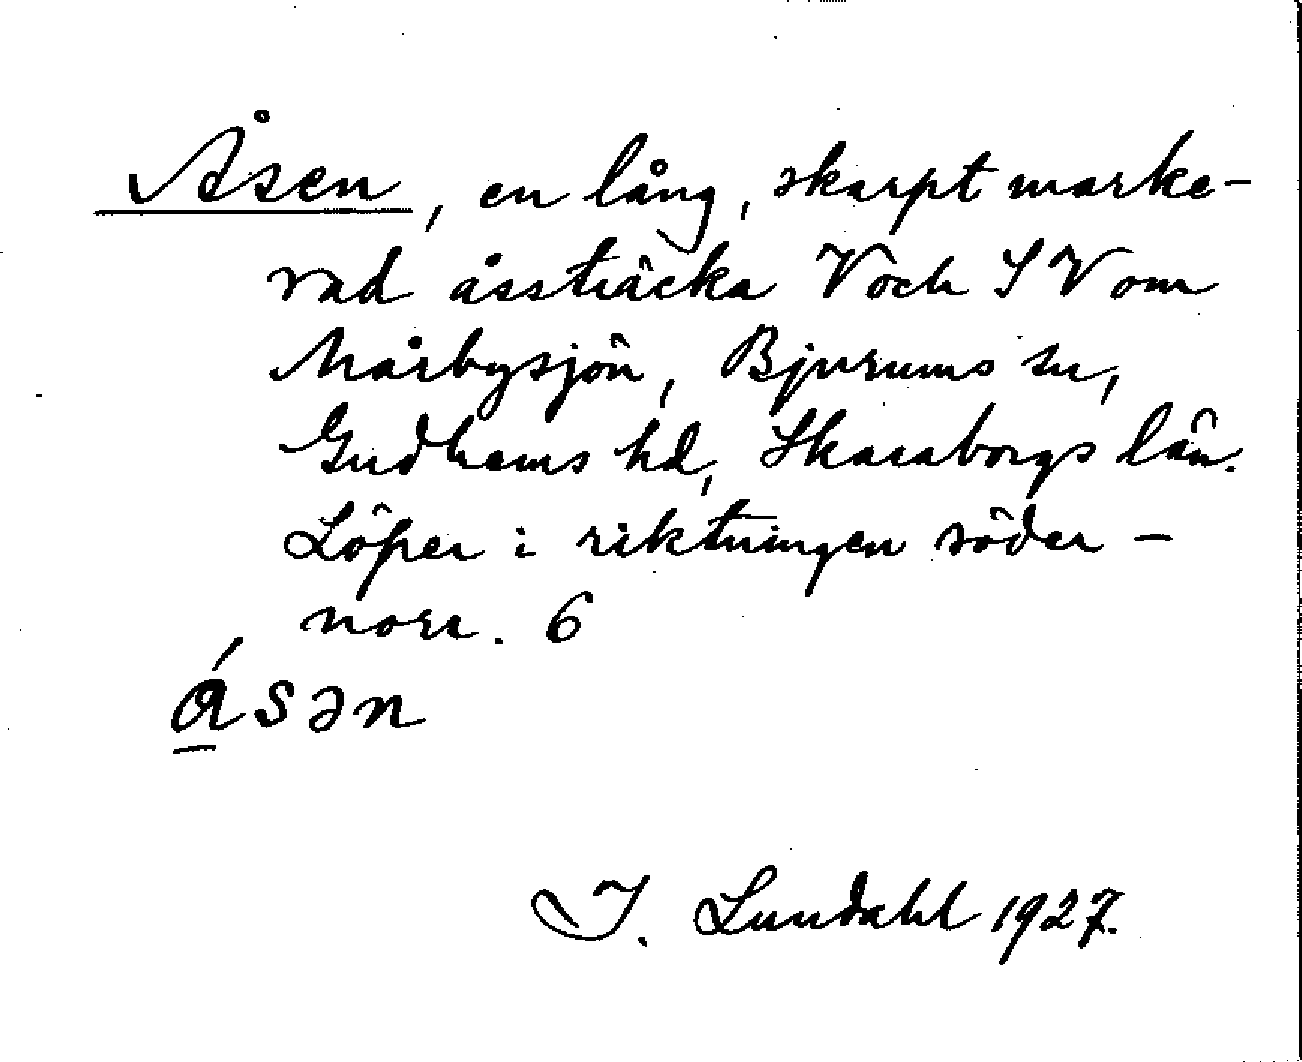 Åsen, en lång, skarpt marke-
rad åssträcka V och SV om
Mårbysjön, Bjurums sn,
Gudhems hd, Skaraborgs län.
Löper i riktningen söder -
norr. 6
ásən
I. Lundahl 1927.